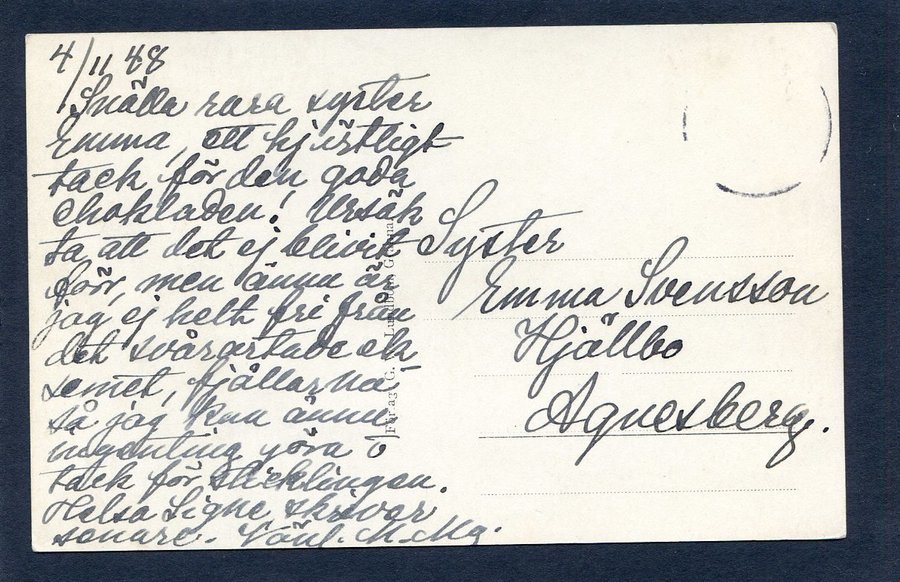 4/11 48
Snälla rara syster
Emma, ett hjärtligt
tack för den goda
chokladen! Ursäk
ta att det ej blivit
förr, men ännu är
jag ej helt fri från
det svårartade ek
semet, fjällarna,
så jag kan ännu
ingenting göra
tack för sticklingen.
Helsa Signe skriver
senare. Vänl. M. Mg.
Förlag G.
Syster
Emma Svensson
Hjällbo
Agnesberg.